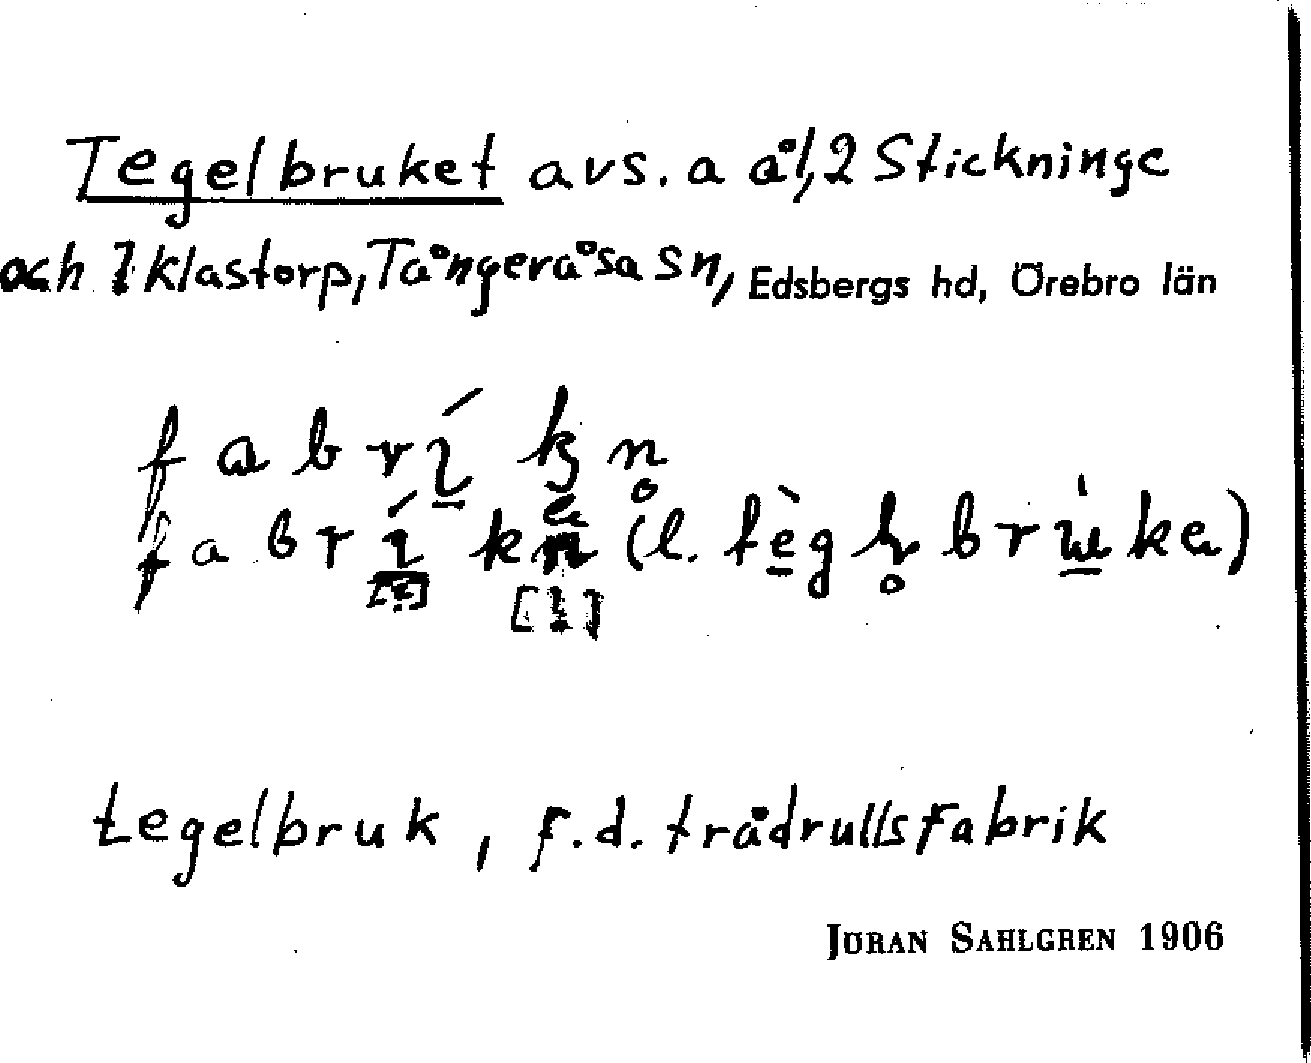 Tegelbruket avs. a ål, 2 Stickninge
och 1 Klastorp, Tångeråsa sn, Edsbergs hd, Örebro län
fabrí̱kn̥
fabrí̱ka (l. tè̱gl̥bru̱ka)
tegelbruk, f.d. trådrullsfabrik
JÖRAN SAHLGREN 1906